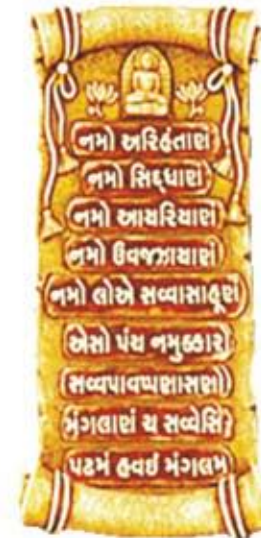 નમો અરિહંતાણં
નમો સિદ્ધાણં
નમો આયરિયાણં
નમો ઉવજઝાયાણં
નમો લોએ સવ્વાસાહૂણં
એસો પંચ નમુક્કાર
સવ્વપાવપ્પણાસણો
મંગલાણં ચ સવ્વેસિં
પઢમં હવઈ મંગલમ